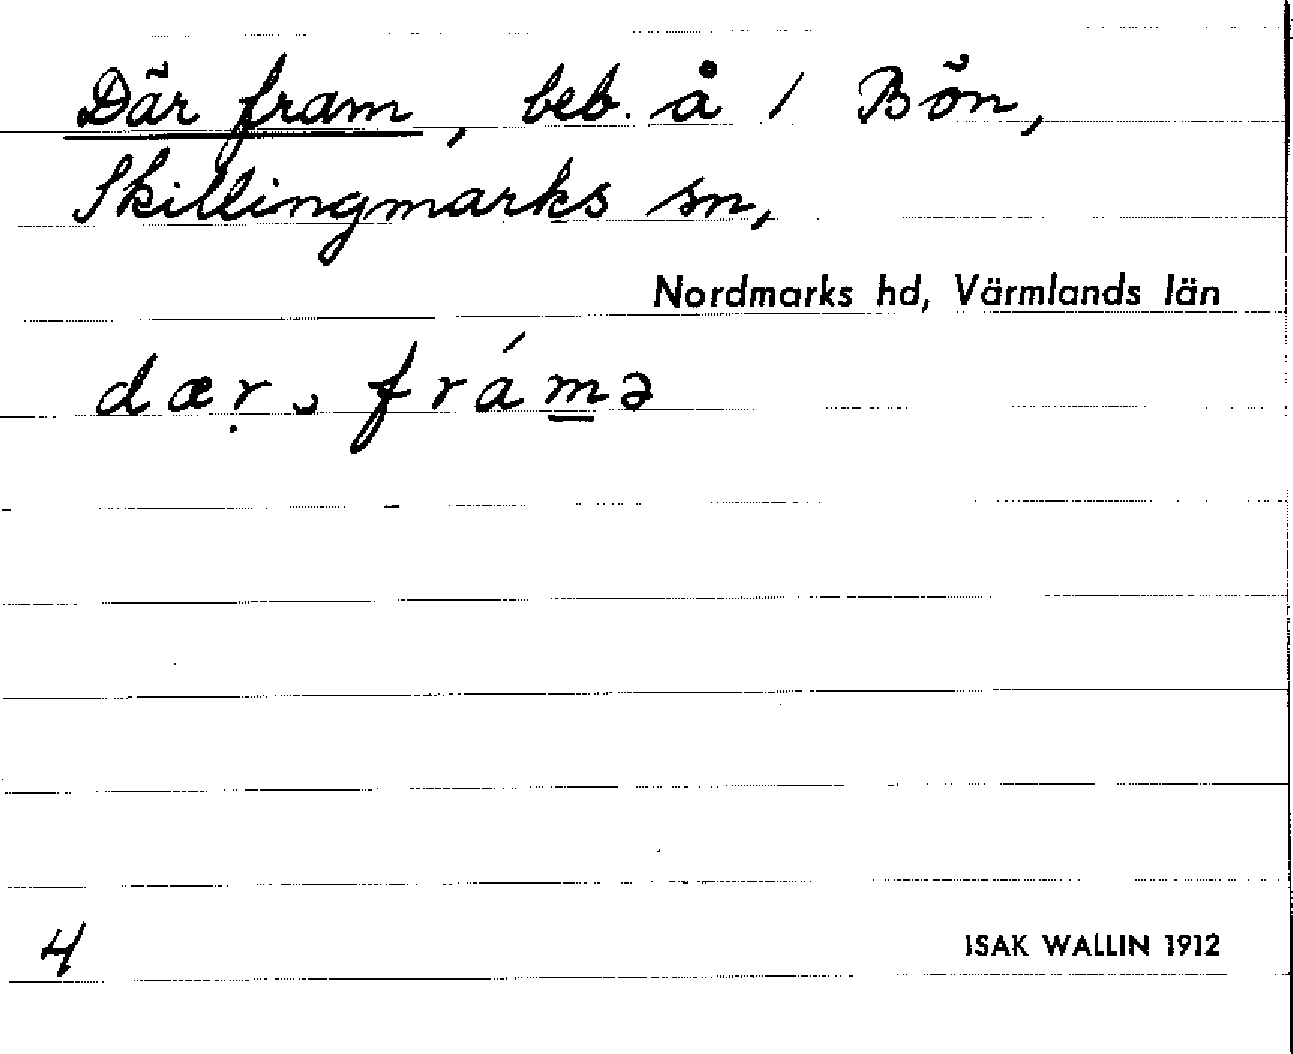 Där fram, beb. å 1 Bön,
Skillingmarks sn,
Nordmarks hd, Värmlands län
dæṛ ᴗ frám̲ə
4
ISAK WALLIN 1912